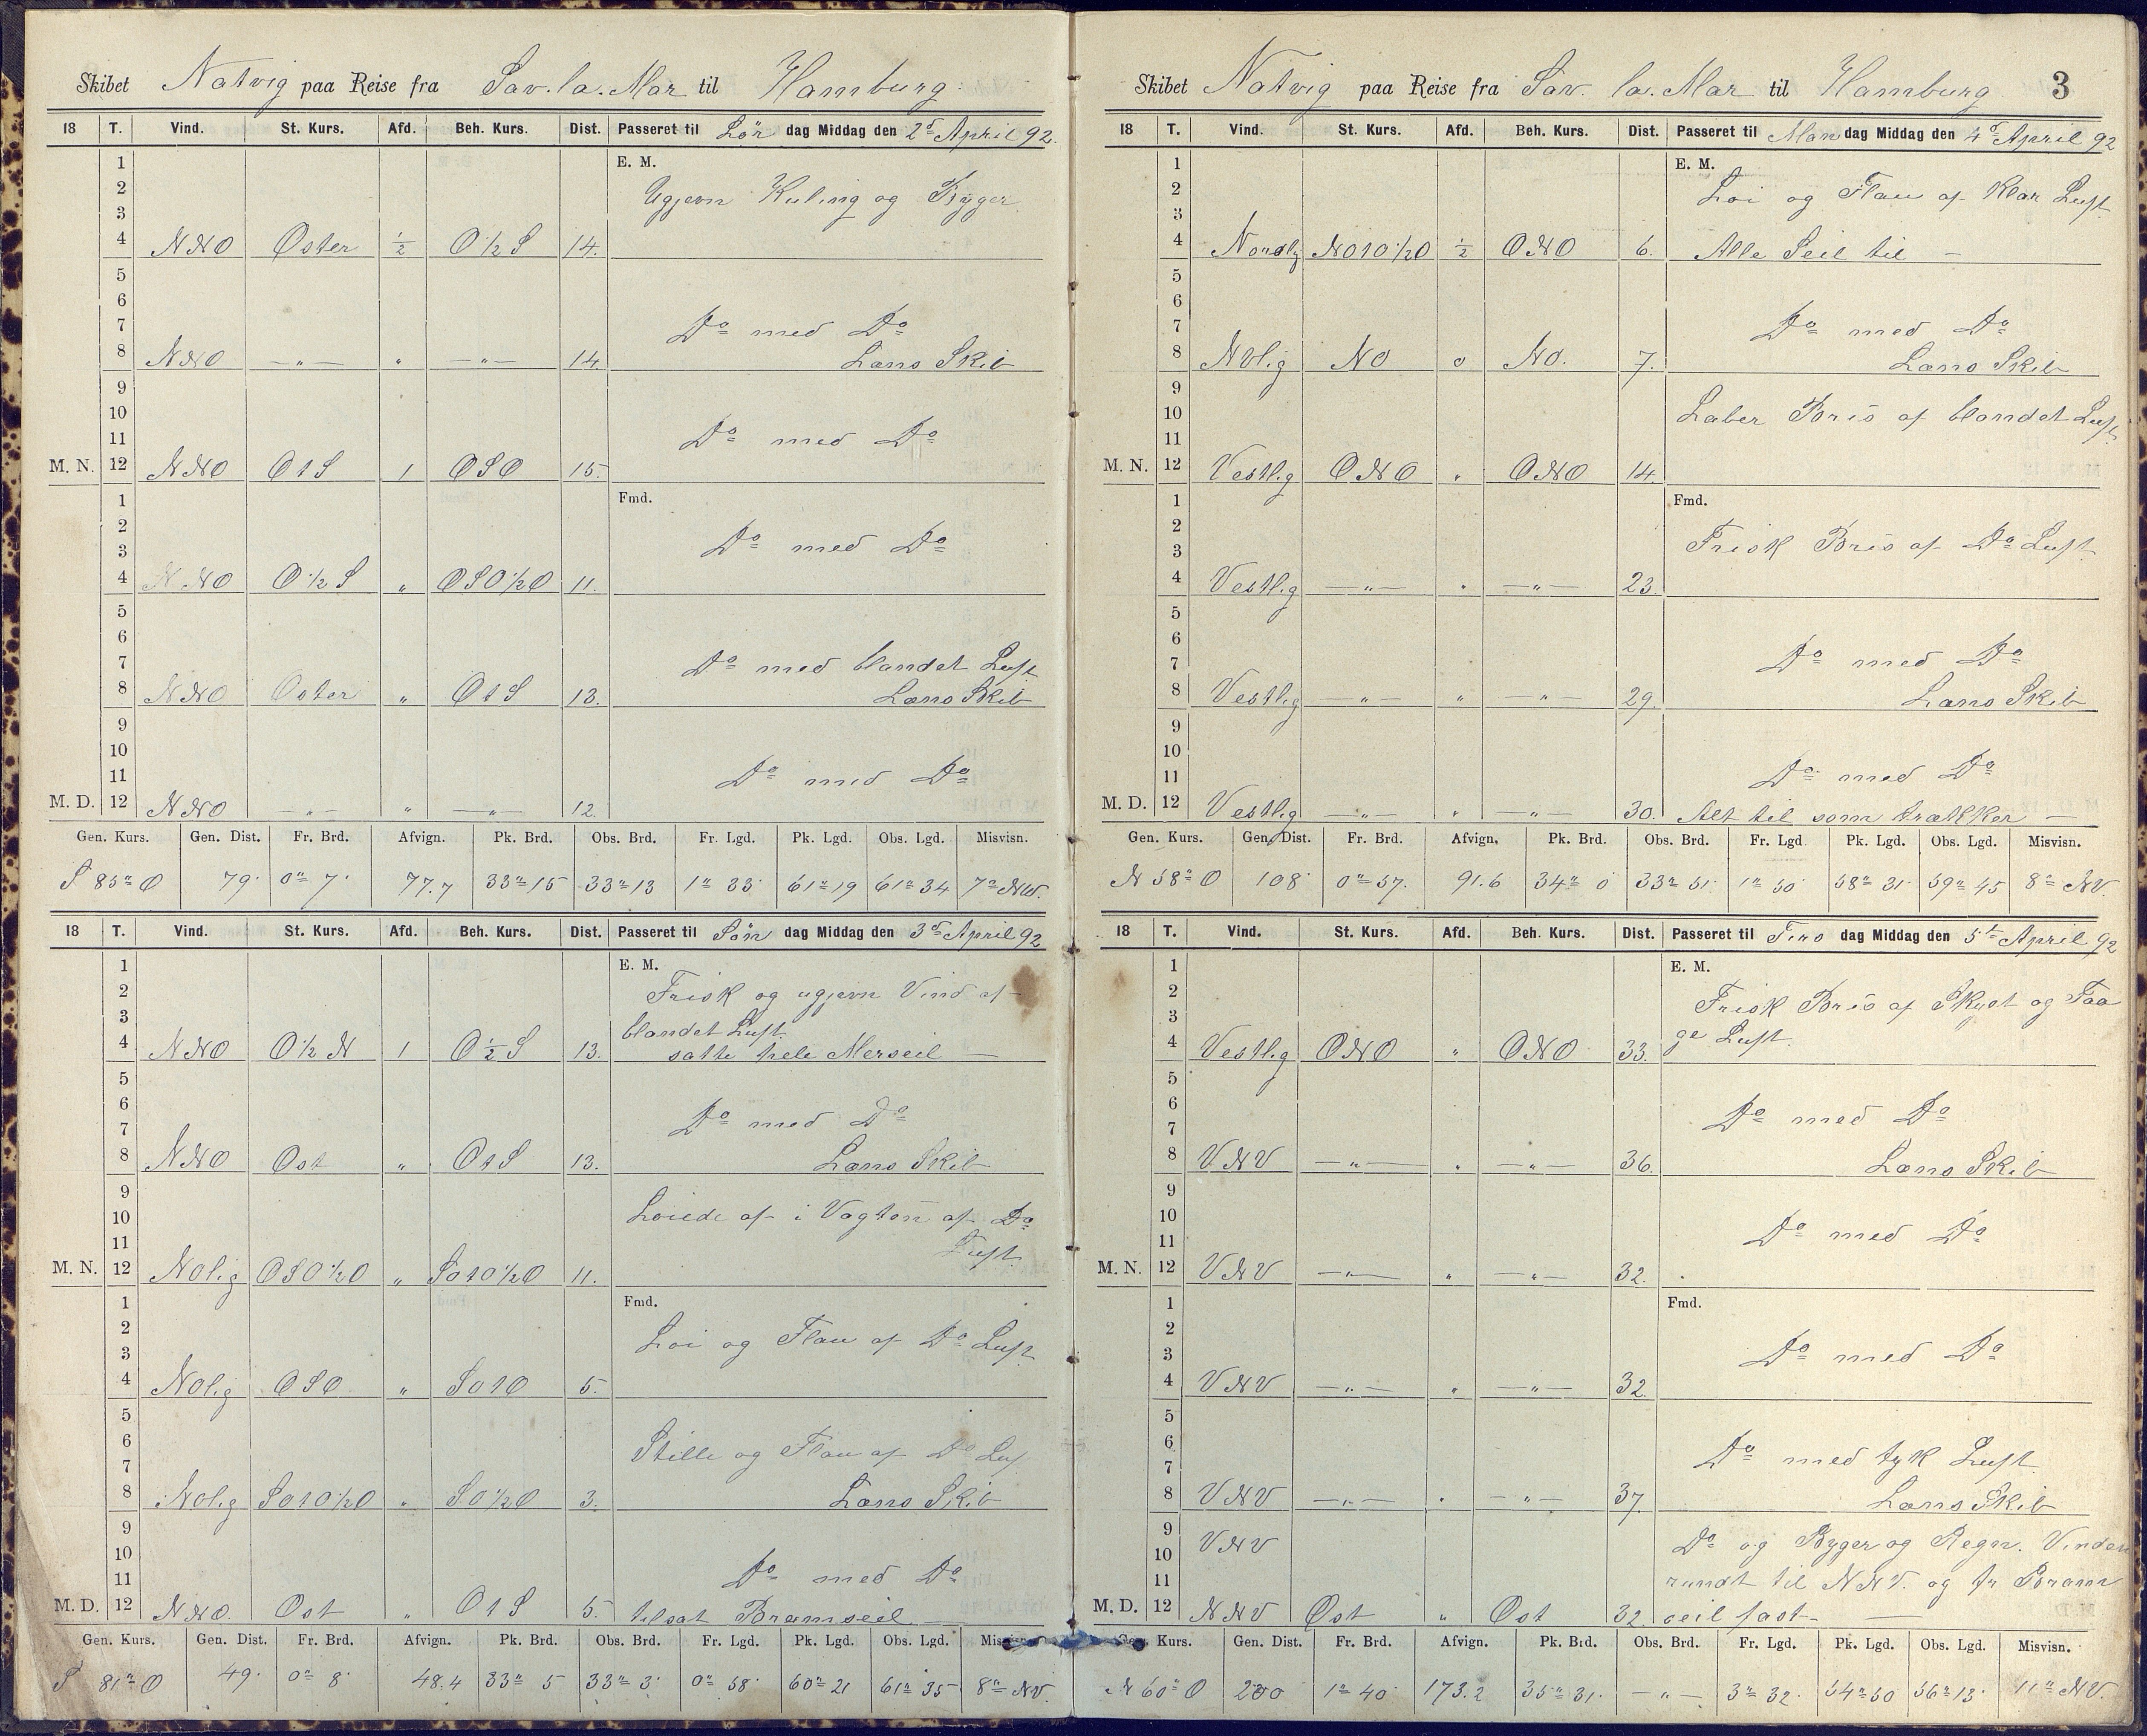 Skibet Natvig paa Reise fra Sav. la. Mar til Hamburg
18 T. Vind. St. Kurs. Afd. Beh. Kurs. Dist. Passeret til Lör dag Middag den 2d April 92.
1 E. M.
2 Ugjevn Kuling og Byger
3
4 NNO Öster ½ O½S 14.
5
6
7 Do med Do
8 NNO —"— " —"— 14. Læns Skib
9
10
11 Do med Do
M. N. 12 NNO OtS 1 OSO 15.
1 Fmd.
2
3 Do med Do
4 NNO O½S " OSO½O 11.
5
6
7 Do med blandet Luft
8 NNO Oster " OtS 13. Læns Skib
9
10
11 Do med Do
M. D. 12 NNO —"— " —"— 12.
Gen. Kurs. Gen. Dist. Fr. Brd. Afvign. Pk. Brd. Obs. Brd. Fr. Lgd. Pk. Lgd. Obs. Lgd. Misvisn.
S 85° O 79' 0° 7' 77.7 33° 15 33° 13 1° 33' 61° 19 61° 34 7° NW.
18 T. Vind. St. Kurs. Afd. Beh. Kurs. Dist. Passeret til Sön dag Middag den 3d April 92
1 E. M.
2 Frisk og ugjevn Vind af
3 blandet Luft.
4 NNO O½N 1 O½S 13. satte hele Merseil —
5
6
7 Do med Do
8 NNO Ost " OtS 13. Læns Skib
9
10 Löiede af i Vagten af Do
11 Luft.
M. N. 12 NOlig OSO½O " SOtO½O 11.
1 Fmd.
2 Löi og Flau af Do Luft
3
4 NOlig OSO " SOtO 5.
5
6 Stille og Flau af Do Luf
7
8 NOlig SOtO½O " SO½O 3. Læns Skib
9
10
11 Do med Do
M. D. 12 NNO. Ost " OtS 5. tilsat Bramseil —
Gen. Kurs. Gen. Dist. Fr. Brd. Afvign. Pk. Brd. Obs. Brd. Fr. Lgd. Pk. Lgd. Obs. Lgd.
S 81° O 49' 0° 8' 48.4 33° 5 33° 3' 0° 58' 60° 21 61° 35 8° NV.
Skibet Natvig paa Reise fra Sav. la. Mar til Hamburg 3
18 T. Vind. St. Kurs. Afd. Beh. Kurs. Dist. Passeret til Man dag Middag den 4d April 92
1 E. M.
2 Löi og Flau af Klar Luft
3
4 Nordlig NOtO½O ½ ONO 6. Alle Seil til —
5
6
7 Do med Do
8 NVlig NO 0 NO. 7. Læns Skib
9
10 Laber Bris af blandet Luft
11
M. N. 12 Vestlig ONO " ONO 14.
1 Fmd.
2
3 Frisk Bris af Do Luft
4 Vestlig —"— " —"— 23.
5
6
7 Do med Do
8 Vestlig —"— " —"— 29. Læns Skib
9
10
11 Do med Do
M. D. 12 Vestlig —"— " —"— 30. Alt til som trækker —
Gen. Kurs. Gen. Dist. Fr. Brd. Afvign. Pk. Brd. Obs. Brd. Fr. Lgd. Pk. Lgd. Obs. Lgd. Misvisn.
N 58° O 108' 0° 57. 91.6 34° 0 33° 51' 1° 50' 58° 31' 59° 45 8° NV.
18 T. Vind. St. Kurs. Afd. Beh. Kurs. Dist. Passeret til Tirs dag Middag den 5t April 92
1 E. M.
2 Frisk Bris af Skyet og Taa
3 ge Luft.
4 Vestlig ONO " ONO 33.
5
6
7 Do med Do
8 VNV —"— " —"— 36. Læns Skib
9
10
11 Do med Do
M. N. 12 VNV —"— " —"— 32.
1 Fmd.
2
3 Do med Do
4 VNV —"— " —"— 32.
5
6
7 Do med tyk Luft
8 VNV —"— " —"— 37. Læns Skib
9 VNV
10 Do og Byger og Regn. Vinden
11 rundt til NNV. og fr Bram
M. D. 12 NNV Øst " Øst 32. seil fast —
Kurs. Gen. Dist. Fr. Brd. Afvign. Pk. Brd. Obs. Brd. Fr. Lgd. Pk. Lgd. Obs. Lgd. Misvisn.
N 60° O 200 1° 40' 173.2 35° 31' —"— 3° 32' 54° 50 56° 13' 11° NV.